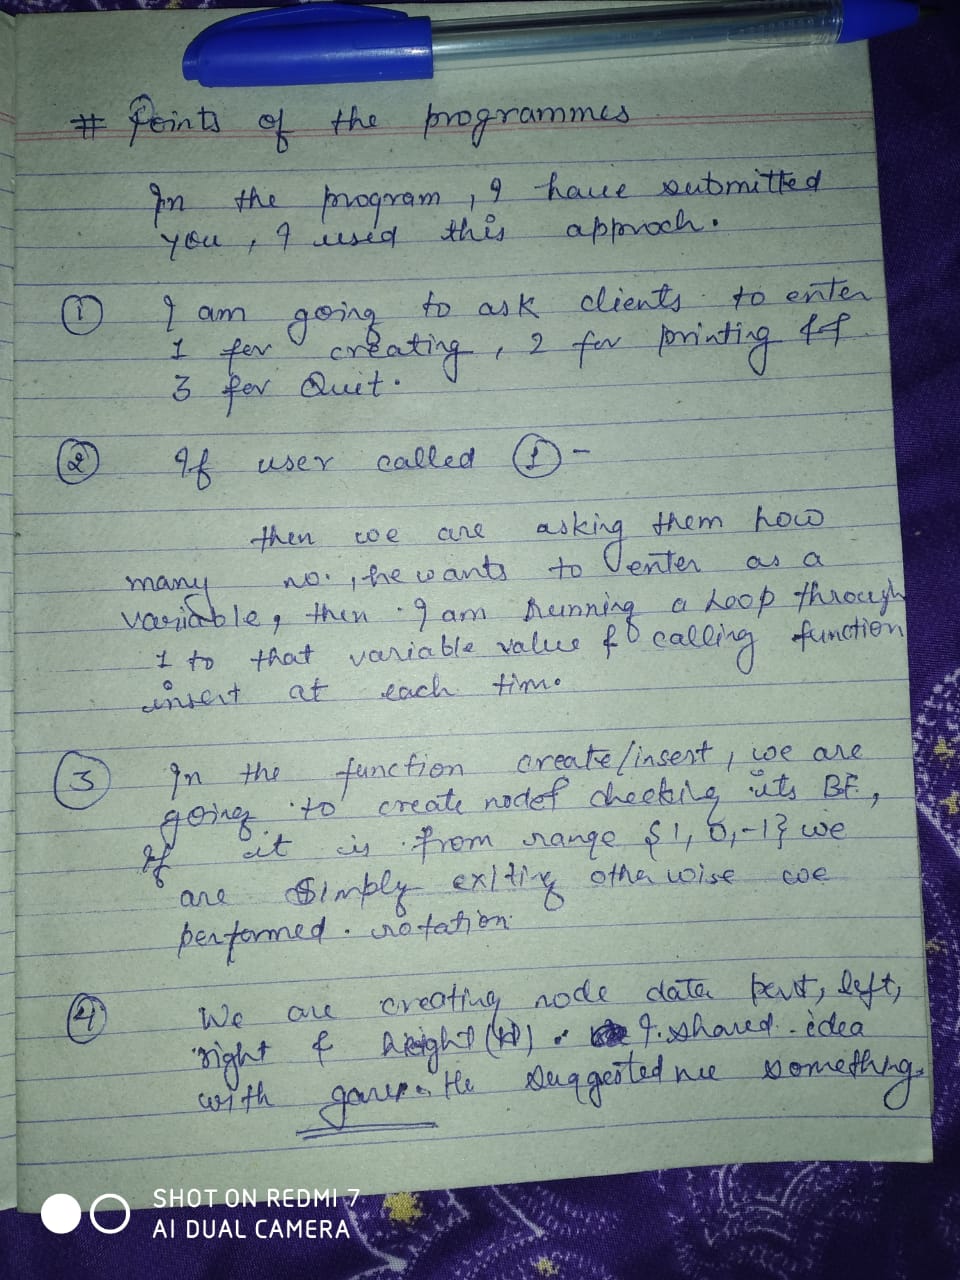 # Points of the programmes
In the program, I have submitted
you, I used this approch.
① I am going to ask clients to enter
1 for creating, 2 for printing &
3 for Quit.
② If user called ① -
then we are asking them how
many no. , he wants to enter as a
variable, then I am running a Loop through
1 to that variable value & calling function
insert at each time.
③ In the function create/insert, we are
going to create node & checking its BF,
If it is from range {1, 0, -1} we
are simply exiting otherwise we
performed. rotation.
④ We are creating node data part, left,
right & height (H) . I. shared idea
with He suggested me something.
SHOT ON REDMI 7
AI DUAL CAMERA